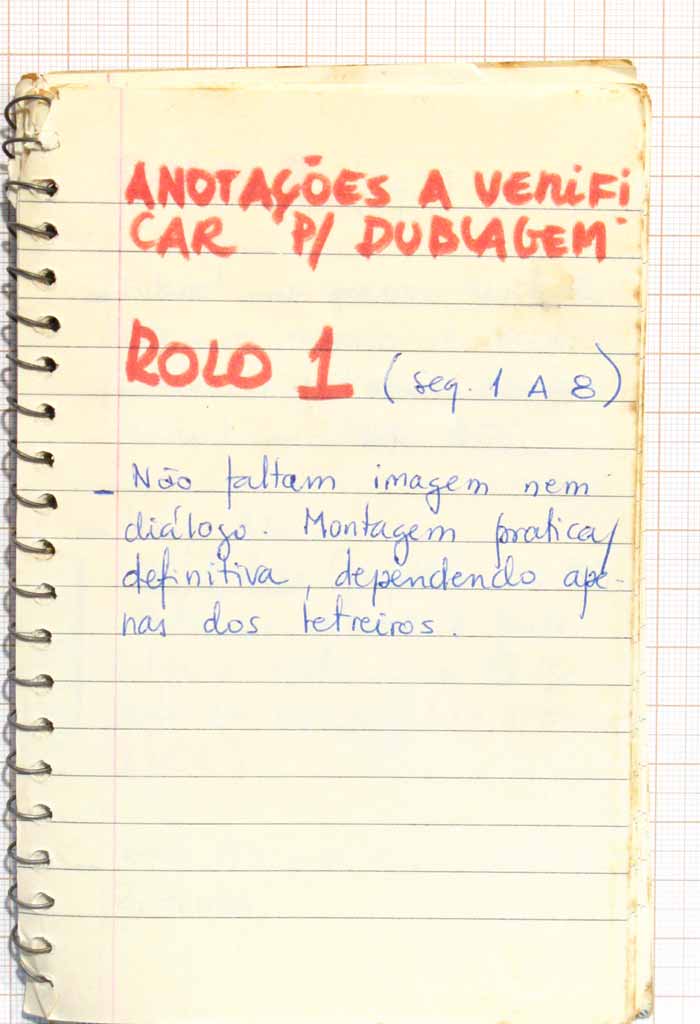 ANOTAÇÕES A VERIFI
CAR P/ DUBLAGEM
ROLO 1 (seq. 1 A 8)
- Não faltam imagem nem
diálogo. Montagem pratica/
definitiva, dependendo ape-
nas dos letreiros.